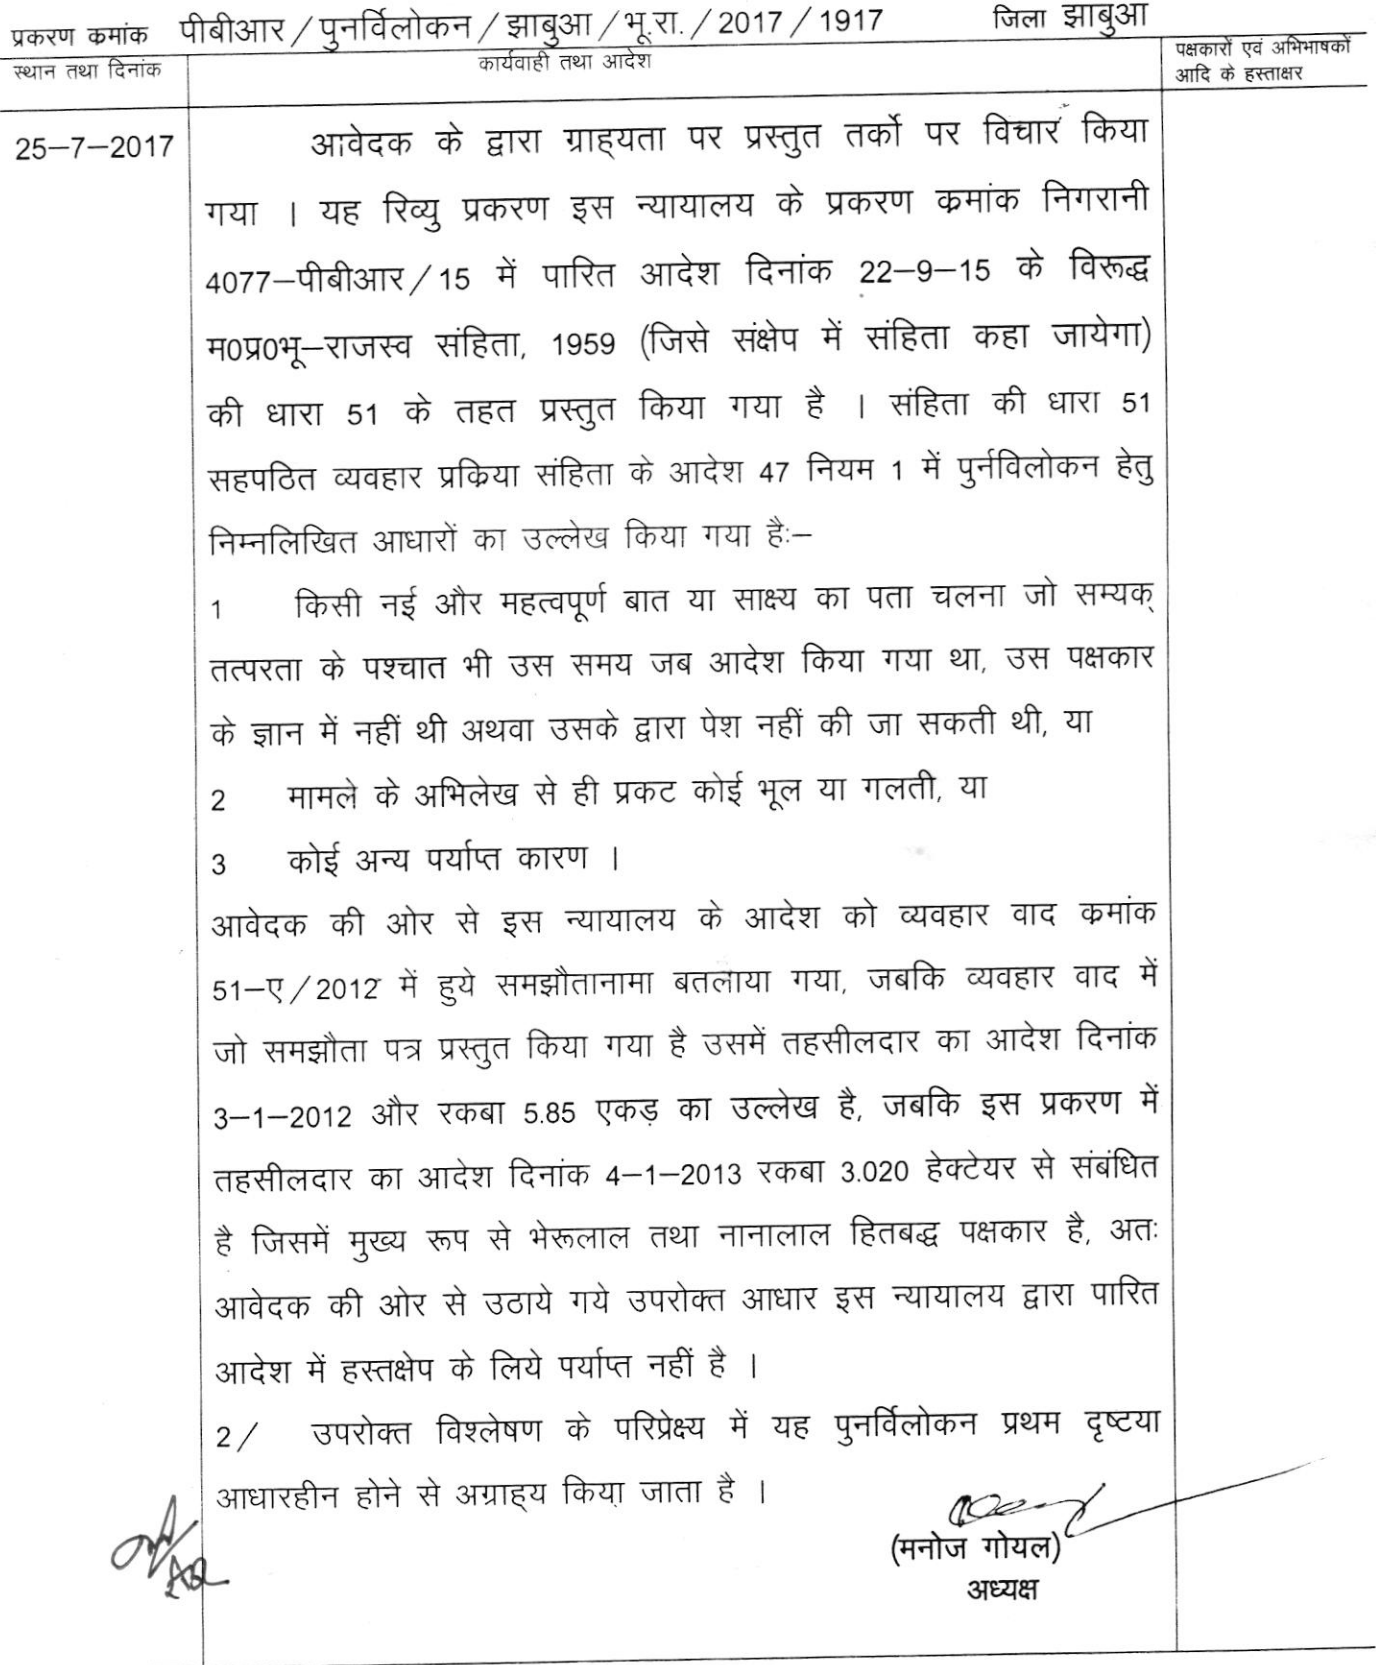 प्रकरण क्रमांक पीबीआर/पुनर्विलोकन/झाबुआ/भू.रा./2017/1917 जिला झाबुआ
स्थान तथा दिनांक
कार्यवाही तथा आदेश
पक्षकारों एवं अभिभाषकों
आदि के हस्ताक्षर
25–7–2017
आवेदक के द्वारा ग्राह्यता पर प्रस्तुत तर्को पर विचार किया
गया । यह रिव्यु प्रकरण इस न्यायालय के प्रकरण क्रमांक निगरानी
4077–पीबीआर/15 में पारित आदेश दिनांक 22–9–15 के विरूद्ध
म0प्र0भू–राजस्व संहिता, 1959 (जिसे संक्षेप में संहिता कहा जायेगा)
की धारा 51 के तहत प्रस्तुत किया गया है । संहिता की धारा 51
सहपठित व्यवहार प्रक्रिया संहिता के आदेश 47 नियम 1 में पुर्नविलोकन हेतु
निम्नलिखित आधारों का उल्लेख किया गया हैः–
1 किसी नई और महत्वपूर्ण बात या साक्ष्य का पता चलना जो सम्यक्
तत्परता के पश्चात भी उस समय जब आदेश किया गया था, उस पक्षकार
के ज्ञान में नहीं थी अथवा उसके द्वारा पेश नहीं की जा सकती थी, या
2 मामले के अभिलेख से ही प्रकट कोई भूल या गलती, या
3 कोई अन्य पर्याप्त कारण ।
आवेदक की ओर से इस न्यायालय के आदेश को व्यवहार वाद क्रमांक
51–ए/2012 में हुये समझौतानामा बतलाया गया, जबकि व्यवहार वाद में
जो समझौता पत्र प्रस्तुत किया गया है उसमें तहसीलदार का आदेश दिनांक
3–1–2012 और रकबा 5.85 एकड़ का उल्लेख है, जबकि इस प्रकरण में
तहसीलदार का आदेश दिनांक 4–1–2013 रकबा 3.020 हेक्टेयर से संबंधित
है जिसमें मुख्य रूप से भेरूलाल तथा नानालाल हितबद्ध पक्षकार है, अतः
आवेदक की ओर से उठाये गये उपरोक्त आधार इस न्यायालय द्वारा पारित
आदेश में हस्तक्षेप के लिये पर्याप्त नहीं है ।
2/ उपरोक्त विश्लेषण के परिप्रेक्ष्य में यह पुनर्विलोकन प्रथम दृष्टया
आधारहीन होने से अग्राह्य किया जाता है ।
(मनोज गोयल)
अध्यक्ष